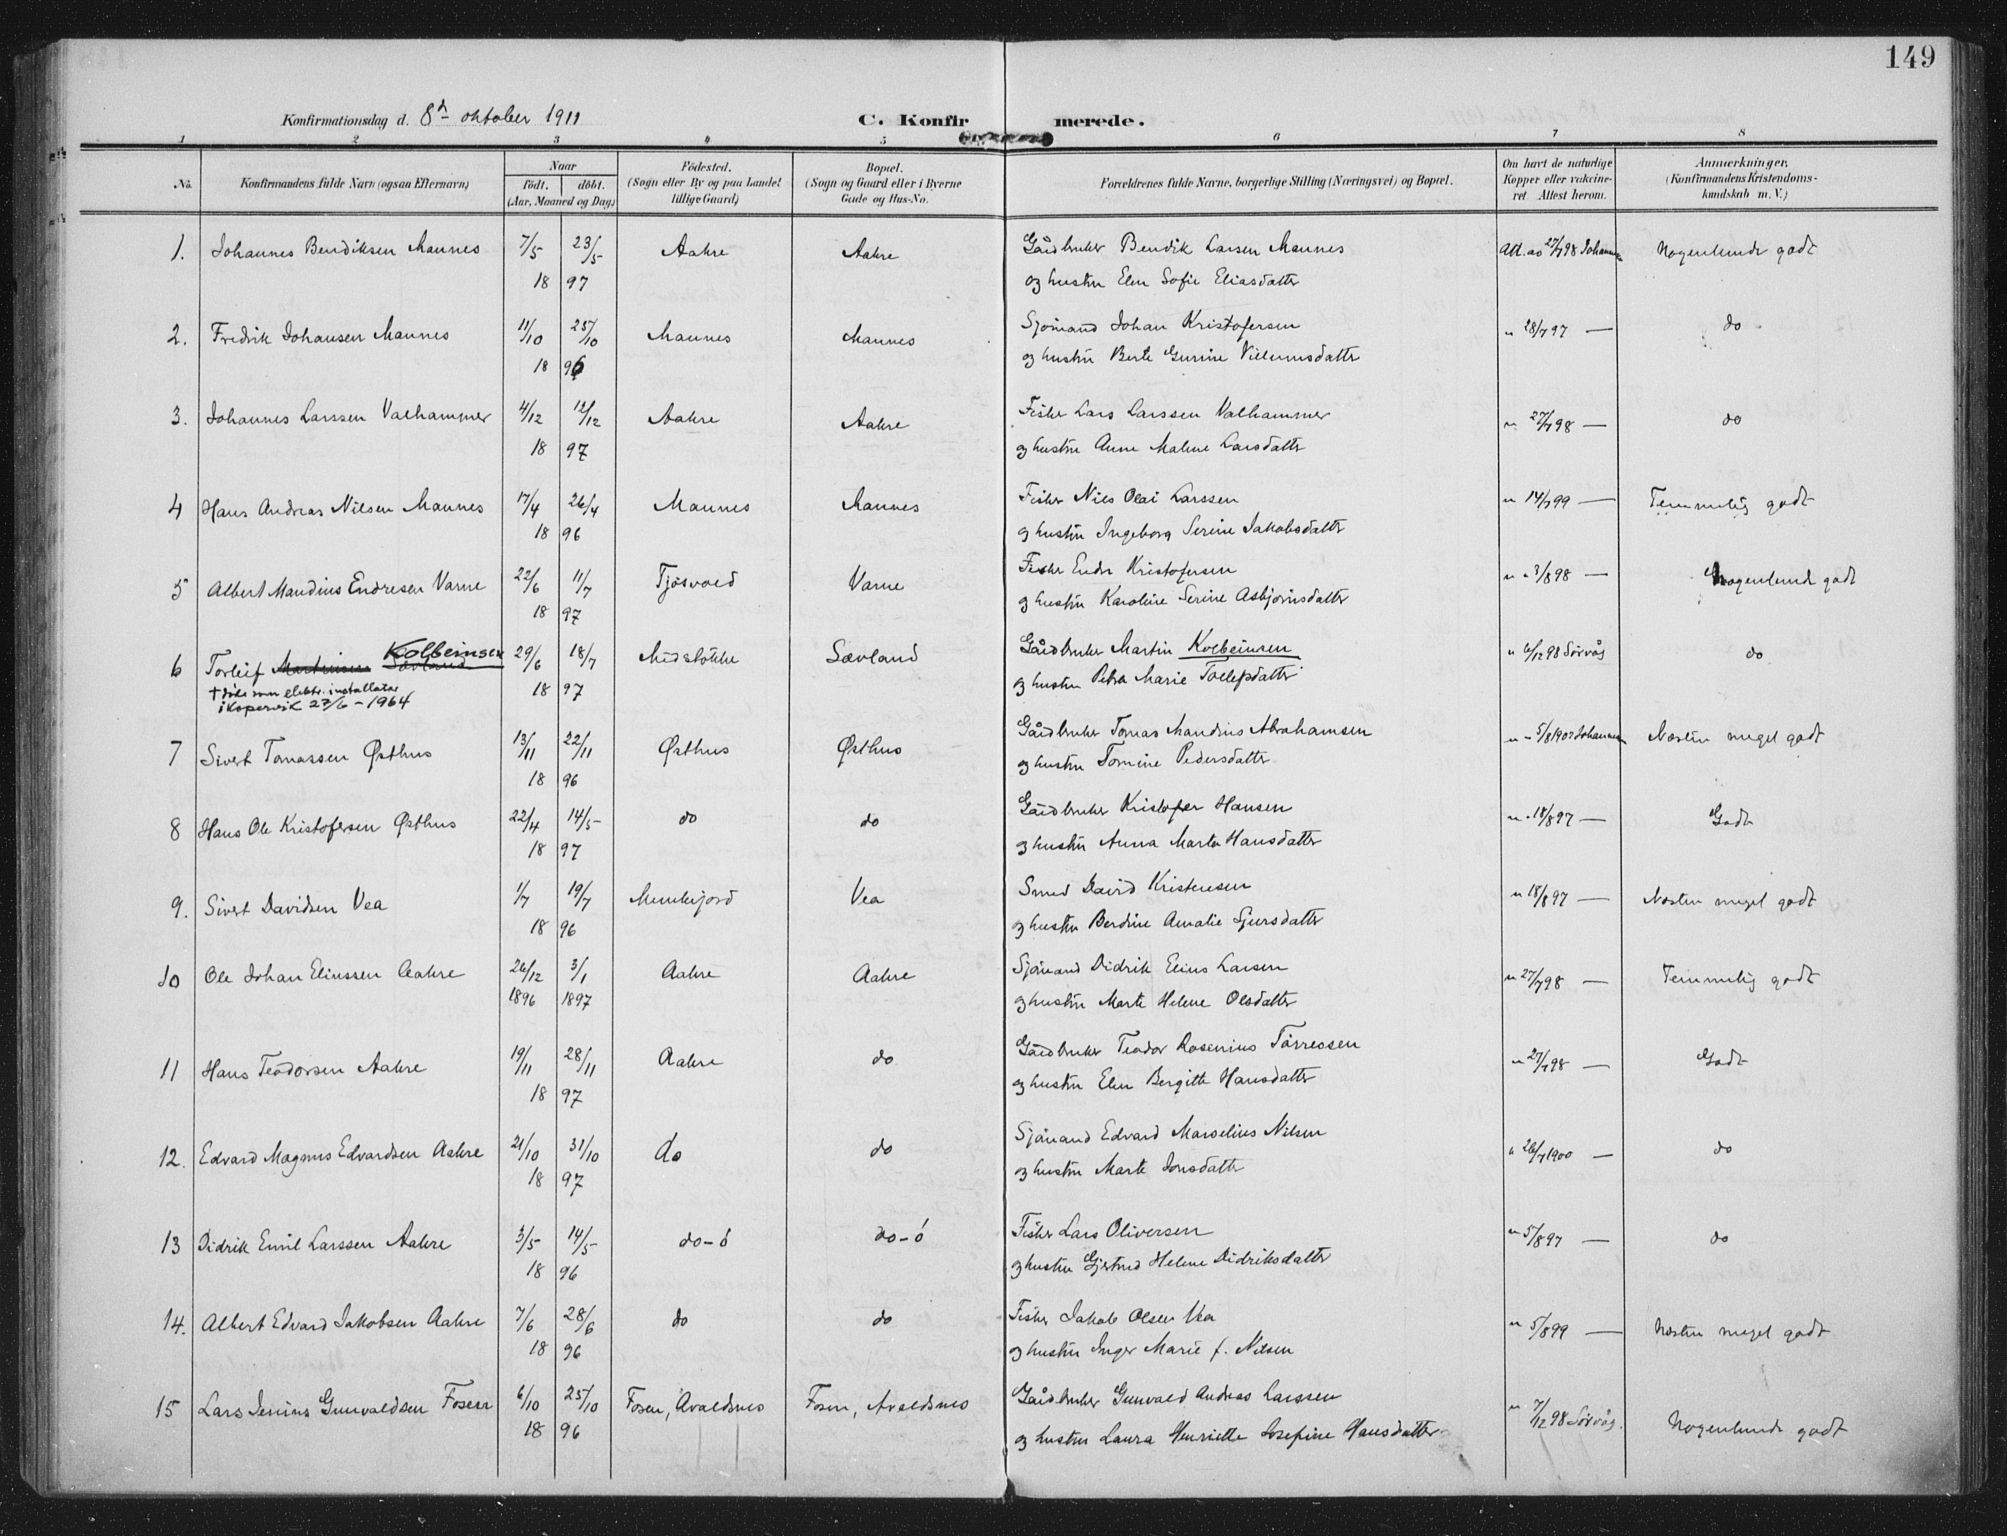 149
Konfirmationsdag d. 8d oktober 1911 C. Konfirmerede.
1 2 3 4 5 6 7 8
No. Konfirmandens fulde Navn (ogsaa Efternavn) Naar födt. döbt. (Aar, Maaned og Dag) Födested. (Sogn eller By og paa Landet tillige Gaard) Bopæl. (Sogn og Gaard eller i Byerne Gade og Hus-No. Forældrenes fulde Navne, borgerlige Stilling (Næringsvei) og Bopæl. Om havt de naturlige Kopper eller vakcineret Attest herom. Anmærkninger. (Konfirmandens Kristendomskundskab m. V.)
1. Johannes Bendiksen Mannes 7/5 23/5 Aakre Aakre Gårdbruker Bendik Larsen Mannes Att. av 27/7 98 Johannesen Nogenlunde godt
18 97 og hustru Elen Sofie Eliasdatter
2. Fredrik Johansen Mannes 11/10 25/10 Mannes Mannes Sjömand Johan Kristofersen " 28/7 97 — do
18 96 og hustru Berte Gurine Villumsdatter
3. Johannes Larssen Valhammer 4/12 12/12 Aakre Aakre Fisker Lars Larssen Valhammer " 27/7 98 — do
18 97 og hustru Anne Malene Larsdatter
4 Hans Andreas Nilsen Mannes 17/4 26/4 Mannes Mannes Fisker Nils Olai Larssen " 14/7 99 — Temmelig godt
18 96 og hustru Ingeborg Serine Jakobsdatter
5 Albert Mandius Endresen Varne 22/6 11/7 Tjösvold Varne Fisker Endre Kristofersen " 3/8 98 — Nogenlunde godt
18 97 og hustru Karoline Serine Asbjörnsdatter
6 Torleif Martinsen Sævland Kolbeinsen 29/6 18/7 Midstökke Sævland Gårdbruker Martin Kolbeinsen " 6/12 98 Sörvåg do
† döde som elektr. installatør 18 97 og hustru Petra Marie Tollefsdatter
i Kopervik 27/6 - 1964
7 Sivert Tomassen Østhus 13/11 22/11 Østhus Østhus Gårdbruker Tomas Mandius Abrahamsen " 5/8 1907 Johannesen Næsten meget godt
18 96 og hustru Tomine Pedersdatter
8 Hans Ole Kristofersen Østhus 22/4 14/5 do do Gårdbruker Kristofer Hansen " 18/8 97 — Godt
18 97 og hustru Anna Marta Hansdatter
9. Sivert Davidsen Vea 1/7 19/7 Munkejord Vea Smed David Kristensen " 18/8 97 — Næsten meget godt
18 96 og hustru Berdine Amalie Sjursdatter
10 Ole Johan Eliussen Aakre 26/12 3/1 Aakre Aakre Sjömand Didrik Elius Larsen " 27/7 98 — Temmelig godt
1896 1897 og hustru Marte Helene Olsdatter
11 Hans Teodorsen Aakre 19/11 28/11 Aakre do Gårdbruker Teodor Rosenius Törressen " 27/7 98 — Godt
18 97 og hustru Elen Bergitte Hansdatter
12. Edvard Magnus Edvardsen Aakre 21/10 31/10 do do Sjömand Edvard Marselius Nilsen " 26/7 1900 — do
18 97 og hustru Marte Jonsdatter
13 Didrik Emil Larssen Aakre 3/5 14/5 do-ö do-ö Fisker Lars Oliversen " 5/8 97 — do
18 96 og hustru Gjertrud Helene Didriksdatter
14. Albert Edvard Jakobsen Aakre 7/6 28/6 do do Fisker Jakob Olsen Vea " 5/8 99 — Næsten meget godt
18 96 og hustru Inger Marie f. Nilsen
15 Lars Jenius Gunvaldsen Fosen 6/10 25/10 Fosen, Avaldsnes Fosen, Avaldsnes Gårdbruker Gunvald Andreas Larssen " 7/12 98 Sörvåg. Nogenlunde godt
18 96 og hustru Laura Henriette Josefine Hansdatter